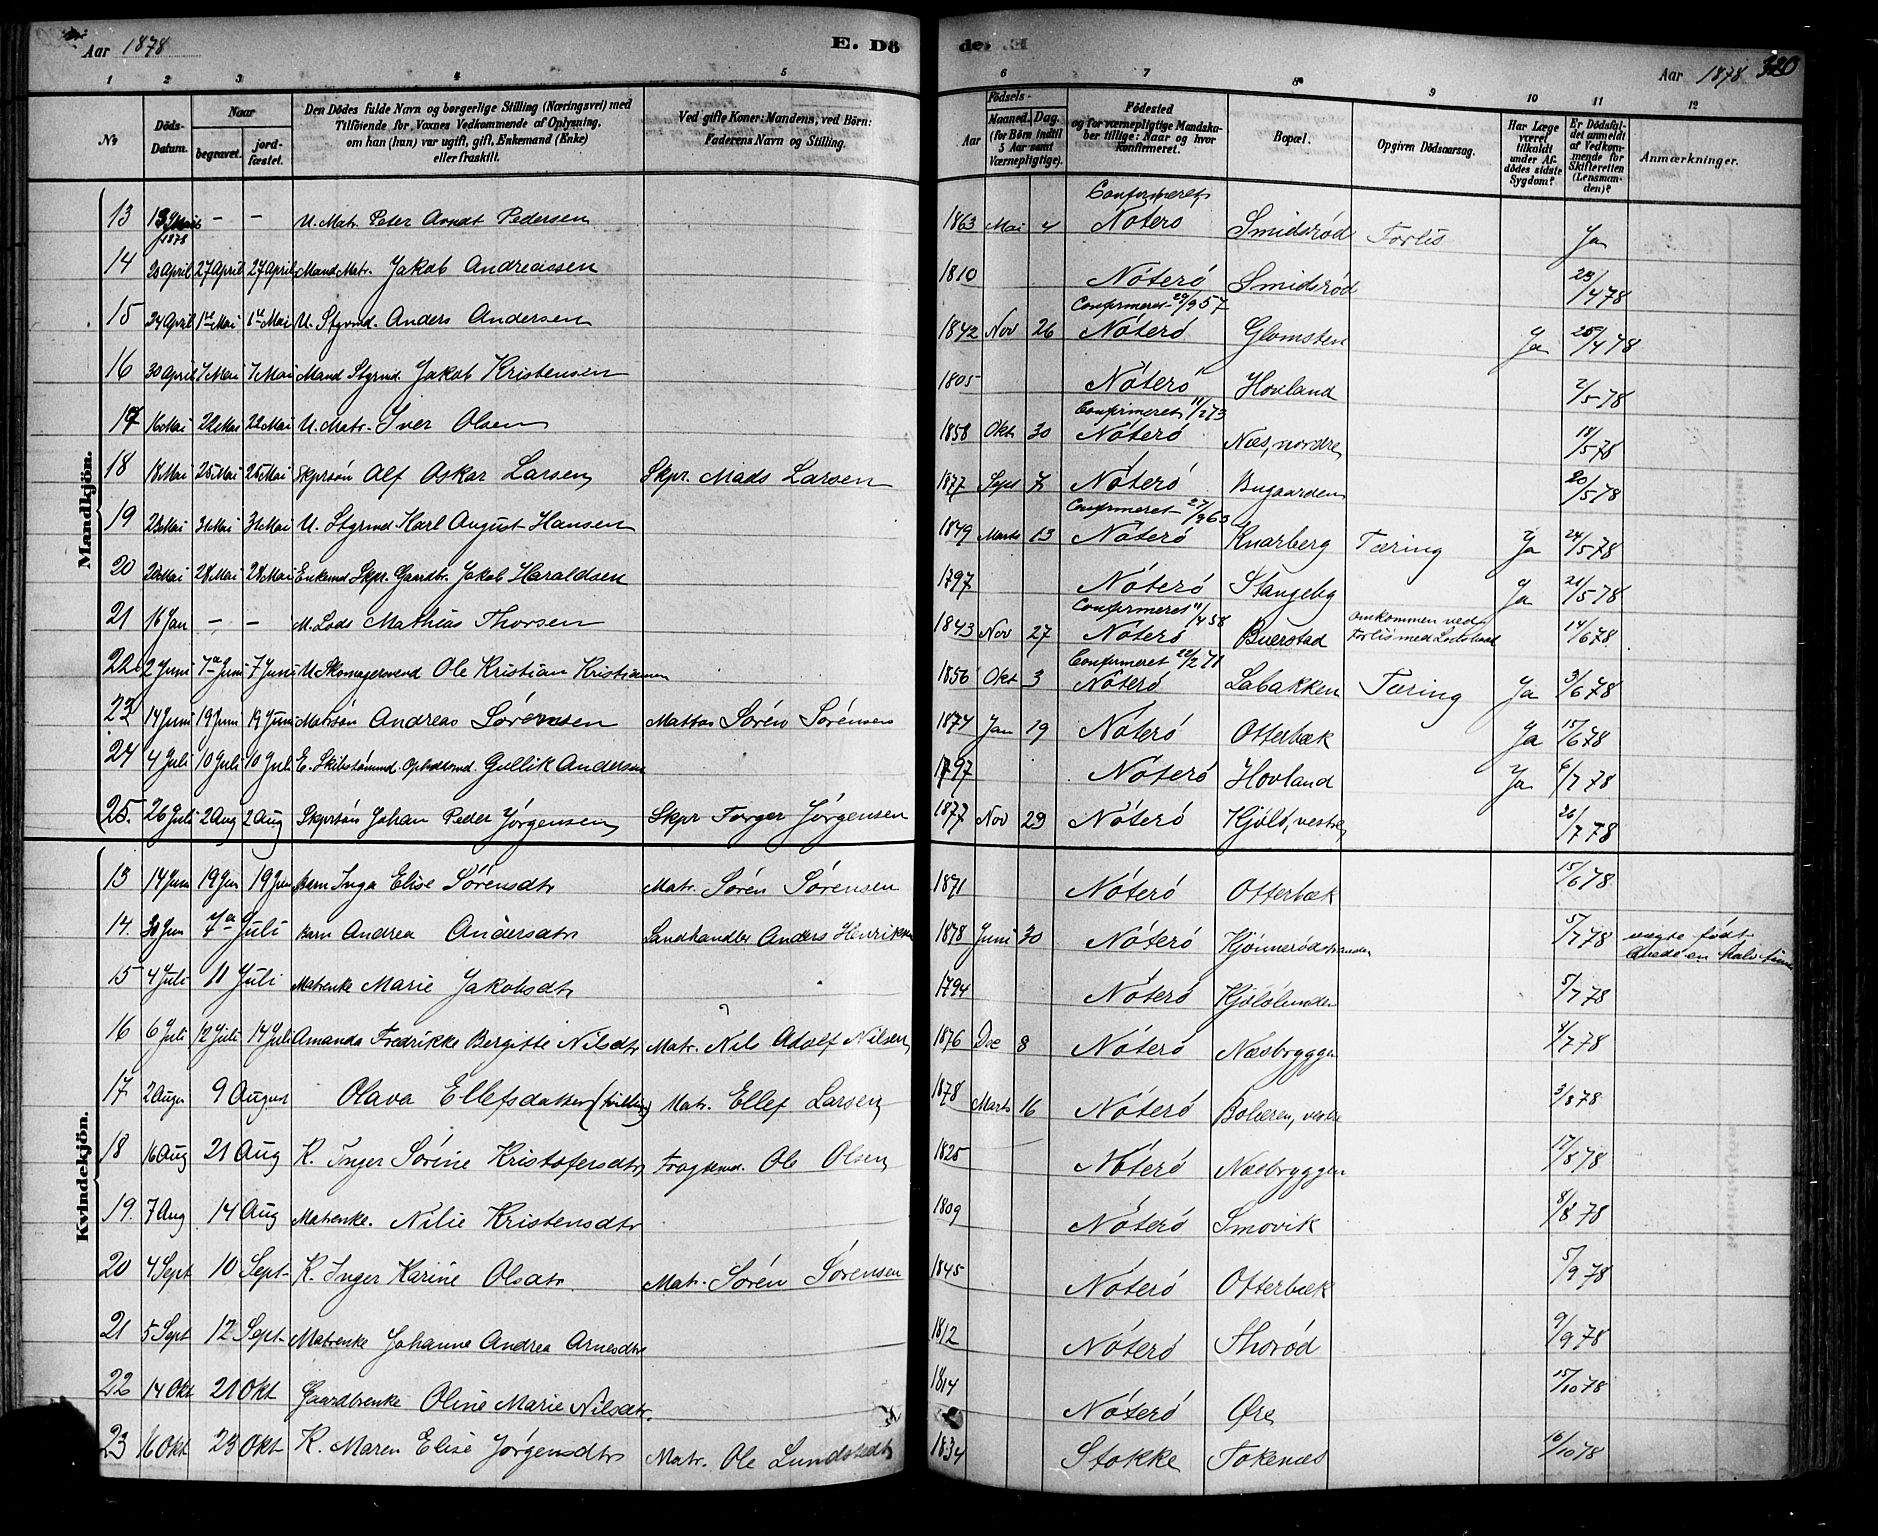 Aar 1878 E. Dö
de. Aar 1878 320
1 2 3 4 5
6 7 8 9 10 11 12
No
Döds-Datum.
Naar
begravet.
jordfæstet.
Den Dödes fulde Navn og borgerlige Stilling (Næringsvei) med
Tilföiende for Voxnes Vedkommende af Oplysning,
om han (hun) var ugift, gift, Enkemand (Enke)
eller fraskilt.
Ved gifte Koner: Mandens, ved Börn:
Faderens Navn og Stilling.
Födsels-
Aar
Maaned. Dag.
(for Börn indtil
5 Aar samt
Værnepligtige).
Födested
og for værnepligtige Mandska-
ber tillige: Naar og hvor
konfirmeret.
Bopæl.
Opgiven Dödsaarsag.
Har Læge
været
tilkaldt
under Af-
dödes sidste
Sygdom?
Er Dödsfal-
det anmeldt
af Vedkom-
mende for
Skifteretten
(Lensman-
den)?
Anmærkninger.
Mandkjön.
13 – – U. Matr. Peter Arndt Pedersen 1863 Mai 4 Confirmeret Nöterö Smidsröd Forlis Ja
1878
14 20 April 27 April 27 April Mand Matr. Jakob Andreassen 1810 Nöterö Smidsröd 23/4 78
15 24 April 1te Mai 1te Mai U. Styrmd. Anders Andersen 1842 Nov 26 Confirmeret 29/9 57 Nöterö Glomsten Ja /4 78
16 30 April 7 Mai 7 Mai Mand Styrmd. Jakob Kristensen 1805 Nöterö Hovland 2/5 78
17 16 Mai 22 Mai 22 Mai U. Matr. Iver Olsen 1858 Okt 30 Confirmeret 11/2 73 Nöterö Næs, nordre 18/5 78
18 18 Mai 25 Mai 25 Mai Skprsön Alf Oskar Larsen Skpr. Mads Larsen 1877 Sept 7 Nöterö Bugaarden 20/5 78
19 23 Mai 31 Mai 31 Mai U. Styrmd Karl August Hansen 1849 Marts 13 Confirmeret 27/9 63 Nöterö Knarberg Tæring Ja 24/5 78
20 20 Mai 28 Mai 28 Mai Enkemd Skpr. Gaardbr. Jakob Haraldsen 1797 Nöterö Stangeby Ja 21/5 78
21 16 Jan – – M. Lods Mathias Thorsen 1843 Nov 27 Confirmeret 11/4 58 Nöterö Buerstad Omkommen ved Forlis med Lodsbaad 14/6 78
22 2 Juni 7de Juni 7 Juni U. Skomagersvend Ole Kristian Kristiansen 1856 Okt 3 Confirmeret 22/2 71 Nöterö Labakken Tæring Ja 3/6 78
23 14 Juni 19 Juni 19 Juni Matrsön Andreas Sörensen Matros Sören Sörensen 1874 Jan 19 Nöterö Otterbæk Ja 15/6 78
24 4 Juli 10 Juli 10 Juli E. Skibstömmd. Opholdsmd. Gullik Andersen 1797 Nöterö Hovland Ja 6/7 78
25. 26 Juli 2 Aug 2 Aug Skprsön Johan Peder Jörgensen Skpr Torger Jörgensen 1877 Nov 29 Nöterö Kjölö, vestre 26/7 78
Kvindekjön.
13 14 Juni 19 Jun 19 Jun Barn Inga Elise Sörensdtr Matr. Sören Sörensen 1871 Nöterö Otterbæk 15/6 78
14. 30 Jun 7de Juli Barn Andrea Andersdtr Landhandler Anders Henriksen 1878 Juni 30 Nöterö Kjönnerödstranden 5/7 78 uægte født
15 4 Juli 11 Juli Matrenke Marie Jakobsdtr 1794 Nöterö Kjölölunden 5/7 78
16 6 Juli 12 Juli 14 Juli Amanda Fredrikke Bergitte Nilsdtr Matr. Nils Adolf Nilsen 1876 Dec 8 Nöterö Næsbryggen /7 78
17 2 Augu 9 August Olava Ellefsdatter (tvilling) Matr. Ellef Larsen 1878 Marts 16 Nöterö Bolæren, vestre 3/8 78
18 16 Aug 21 Aug K. Inger Sörine Kristofersdtr Fragtemd. Ole Olsen 1825 Nöterö Næsbryggen 17/8 78
19. 7 Aug 14 Aug Matrenke. Nilie Kristensdtr 1809 Nöterö Smovik 8/8 78
20 4 Sept 10 Sept K. Inger Karine Olsdtr Matr. Sören Sörensen 1845 Nöterö Otterbæk 5/9 78
21 5 Sept 12 Sept Matrenke Johanne Andrea Arnesdtr 1812 Nöterö Thoröd 9/9 78
22 14 Okt 21 Okt Gaardbrenke Oline Marie Nilsdtr. 1814 Nöterö Øre 15/10 78
23 16 Okt 23 Okt K. Maren Elise Jörgensdtr Matr. Ole Lundstedt 1834 Stokke Tokenæs 16/10 78